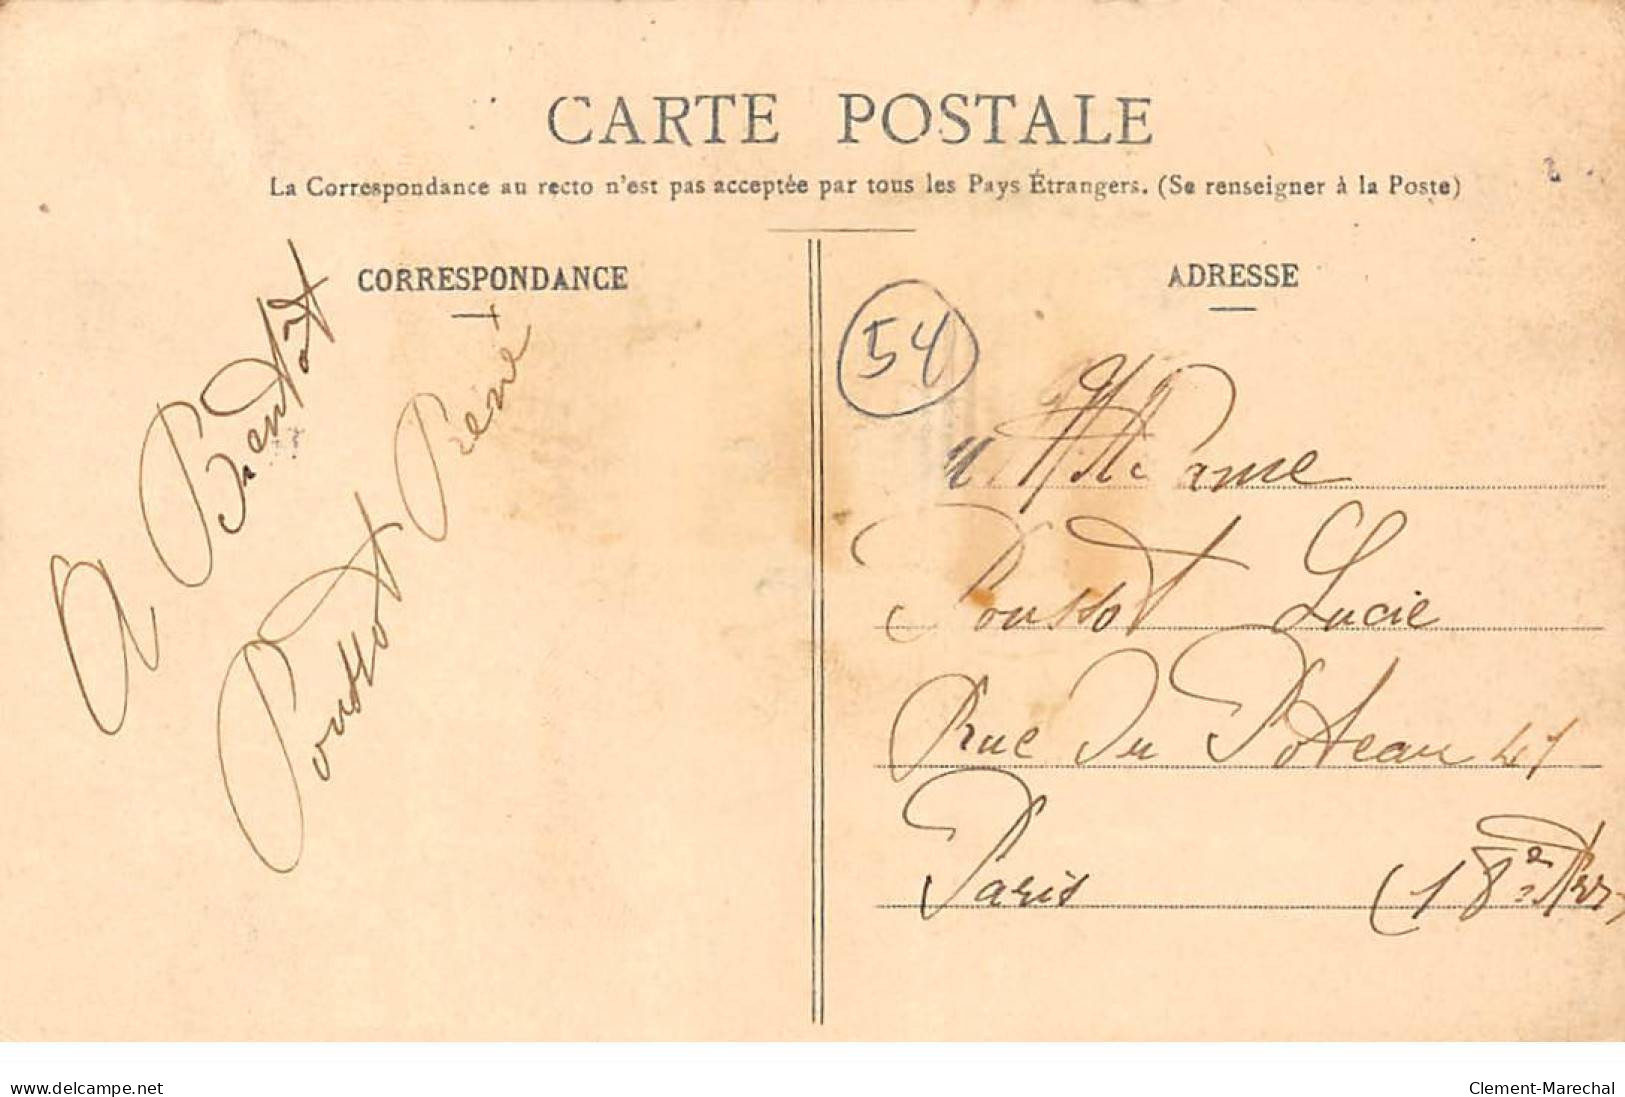 CARTE POSTALE
La Correspondance au recto n'est pas acceptée par tous les Pays Étrangers. (Se renseigner à la Poste)
CORRESPONDANCE
A Bientôt
Poussot Réné
ADRESSE
54
Madame
Poussot Lucie
Rue Du Poteau 47
Paris (18e Arr
www.delcampe.net
Clement-Marechal